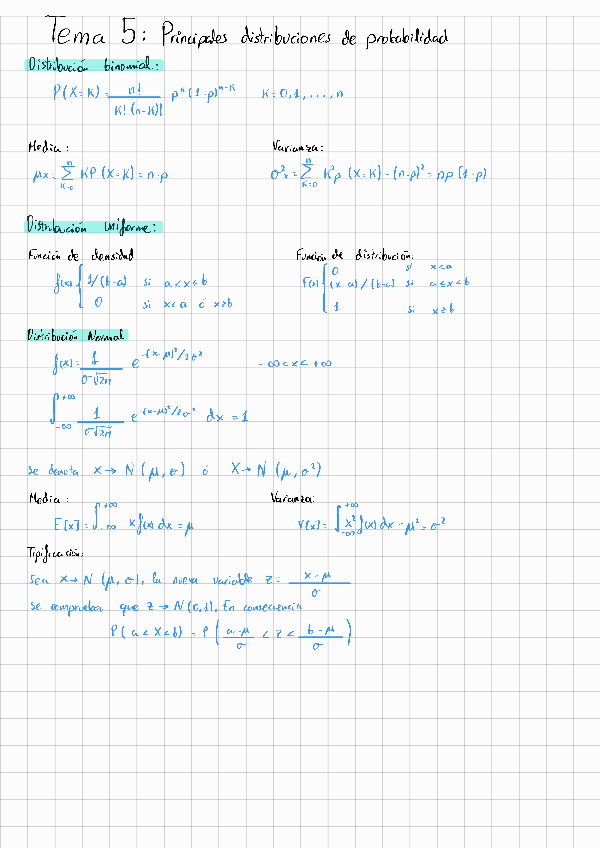 Tema 5: Principales distribuciones de probabilidad
Distribución binomial:
P(X=K) = n! / K!(n-K)! p^K (1-p)^(n-K) K=0,1,...,n
Media: Varianza:
μx = Σ_{K=0}^{n} KP(X=K) = n·p σ²x = Σ_{K=0}^{n} K²p (X=K) - (n·p)² = np(1-p)
Distribución Uniforme:
Función de densidad Función de distribución:
f(x) { 1/(b-a) si a<x<b F(x) { 0 si x<a
0 si x<a ó x>b (x-a)/(b-a) si a≤x<b
1 si x≥b
Distribución Normal
f(x) = 1/(σ√2π) e^(-(x-μ)²/2σ²) -∞<x<+∞
∫_{-∞}^{+∞} 1/(σ√2π) e^(-(x-μ)²/2σ²) dx = 1
Se denota X→N(μ,σ) ó X→N(μ,σ²)
Media: Varianza:
E[x] = ∫_{-∞}^{+∞} xf(x)dx = μ V[x] = ∫_{-∞}^{+∞} x²f(x)dx - μ² = σ²
Tipificación:
Sea X→N(μ,σ), la nueva variable z = (x-μ)/σ
Se comprueba que z→N(0,1). En consecuencia
P(a<X<b) = P((a-μ)/σ < z < (b-μ)/σ)